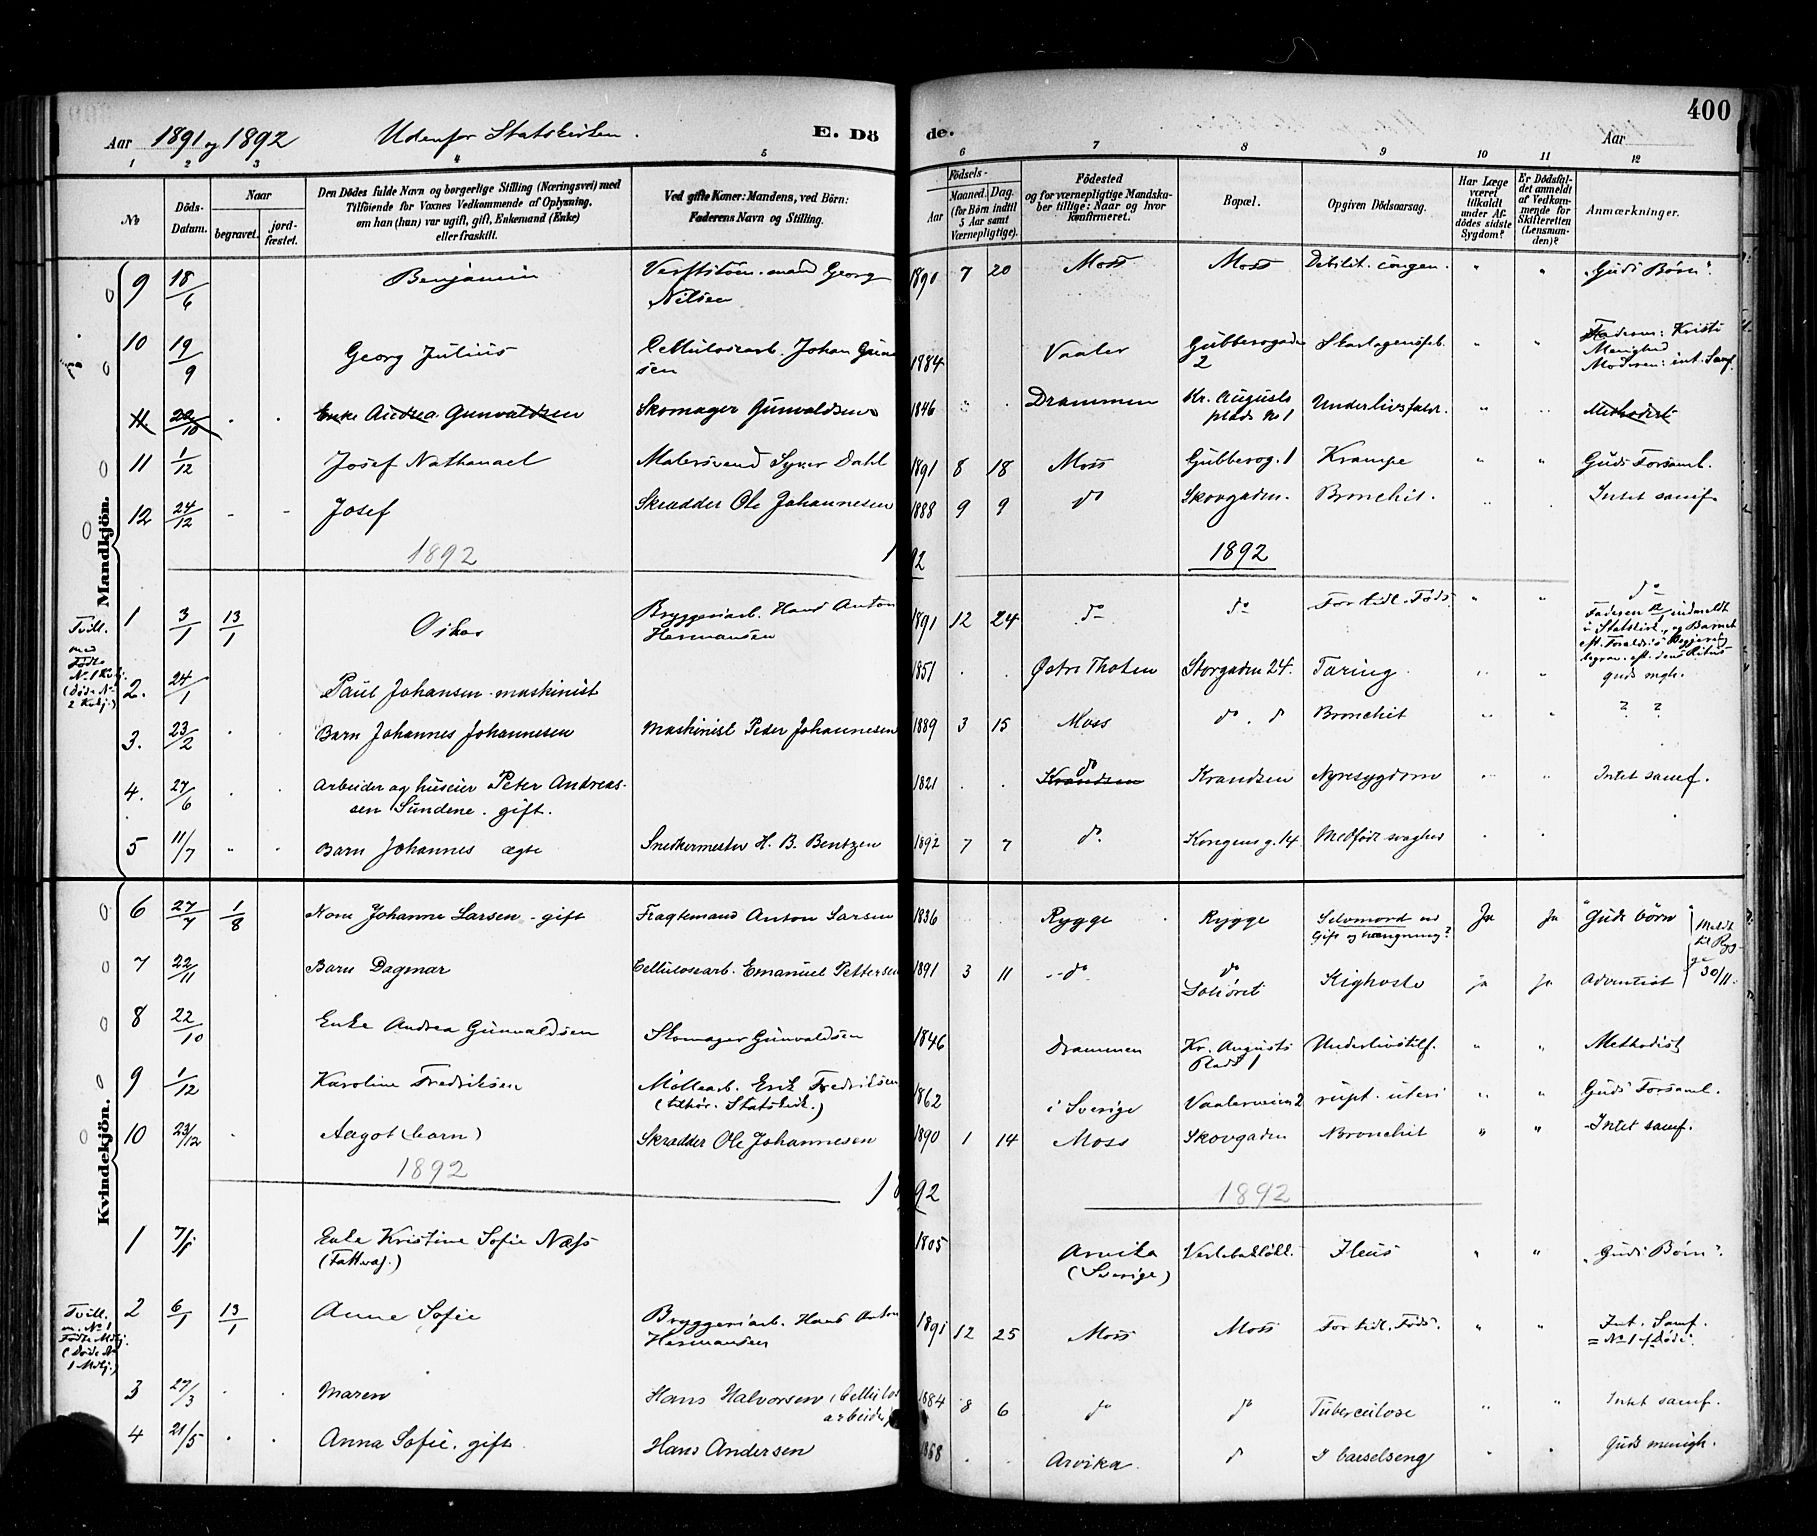 400
Aar 1891 og 1892 Udenfor Statskirken. E. Dö de. Aar
1 2 3 4 5 6 7 8 9 10 11 12
No
Döds-Datum.
Naar
begravet. jord-fæstet.
Den Dödes fulde Navn og borgerlige Stilling (Næringsvei) med
Tilföiende for Voxnes Vedkommende af Oplysning,
om han (hun) var ugift, gift, Enkemand (Enke)
eller fraskilt.
Ved gifte Koner: Mandens, ved Börn:
Faderens Navn og Stilling.
Födsels-
Aar Maaned. Dag.
(for Börn indtil
5 Aar samt
Værnepligtige).
Födested
og for værnepligtige Mandska-
ber tillige: Naar og hvor
konfirmeret.
Bopæl.
Opgiven Dödsaarsag.
Har Læge
været
tilkaldt
under Af-
dödes sidste
Sygdom?
Er Dödsfal-
det anmeldt
af Vedkom-
mende for
Skifteretten
(Lensman-
den)?
Anmærkninger.
Mandkjön.
9 18/6 Benjamin Verftstöm.mand Georg Nilsen 1890 7 20 Moss Moss Debilit. congen. " " "Guds Børn".
10 19/9 Georg Julius Cellulosearb. Johan 1884 Vaaler Gubberogaden 2 Skarlagensfeb. " " Faderen: Kristi Menighed Moderen: int. Samf.
11. 22/10 Enke Andrea Gunvaldsen Skomager Gunvaldsen 1846 Drammen Kr. Augusts plads No 1 Underlivsfald. " " Methodist
11 1/12 Josef Nathanael Malersvend Syver Dahl 1891 8 18 Moss Gubberog. 1 Krampe " " Guds Forsaml.
12 24/12 Josef Skrædder Ole Johannesen 1888 9 9 do Skovgaden. Bronchit. Intet samf.
1892 1892 1892
Tvill. med Fødte No 1 Kvkj. (Døde No 2 Kvkj.)
1 3/1 13/1 Oskar Bryggeriarb. Hans Anton Hermansen 1891 12 24 do do For tidl. Føds. " " do Faderen indmeldt i Statskirk., og Barnet eft. Forældr's Begjæring begrav. eft. dens Ritus
2. 24/1 Paul Johansen maskinist 1851 Østre Thoten Storgaden 24. Tæring. " " guds mgh.
3. 23/2 Barn Johannes Johannesen Maskinist Peder Johannesen 1889 3 15 Moss do. d Bronchit " " ? ?
4. 27/6 Arbeider og huseier Peter Andreas-
sen Sundene. gift. 1821 Krandsen do Krandsen Nyresygdom " " Intet samf.
5 11/7 Barn Johannes ægte Snedkermester H. B. Bentzen 1892 7 7 do. Kongens g. 14 Medfødt svaghed
Kvindekjön.
6 27/7 1/8 Kone Johanne Larsen - gift Fragtemand Anton Larsen 1836 Rygge Rygge Selvmord ved Gift og hængning? Ja Ja "Guds børn Meldt til Rygge 30/11.
7 22/11 Barn Dagmar Cellulosearb. Emanuel Pettersen 1891 3 11 do do Kighoste ja Ja Adventist
8 22/10 Enke Andrea Gunvaldsen Skomager Gunvaldsen 1846 Drammen Kr. Augusts Plads 1 Underlivstilf. " " Methodist
9 1/12 Karoline Fredriksen Møllearb. Erik Fredriksen (tilhør. Statskirk.) 1862 i Sverige Vaalerveien 2 rupt. uteri " " Guds Forsaml.
10 23/12 Aagot (barn) Skrædder Ole Johannesen 1890 1 14 Moss Skovgaden Bronchit " " Intet samf.
1892 1892 1892
1 7/1 Enke Kristine Sofie Næss (Fattigv.) 1805 Arvika (Sverige) Ileus " " "Guds Børn".
Tvill. m. No 1 Fødte Mdkj. (Døde No 1 Mdkj.)
2 6/1 13/1 Anne Sofie Bryggeriarb. Hans Anton Hermansen 1891 12 25 Moss Moss For tidl. Føds. " " Int. Samf. = No 1 af Døde.
3 27/3 Maren Hans Halvorsen (Cellulosearbeider) 1884 8 6 do do Tuberculose " " Intet samf.
4 21/5 Anna Sofie. gift Hans Andersen 1868 Arvika d I barselseng " " Guds menigh.